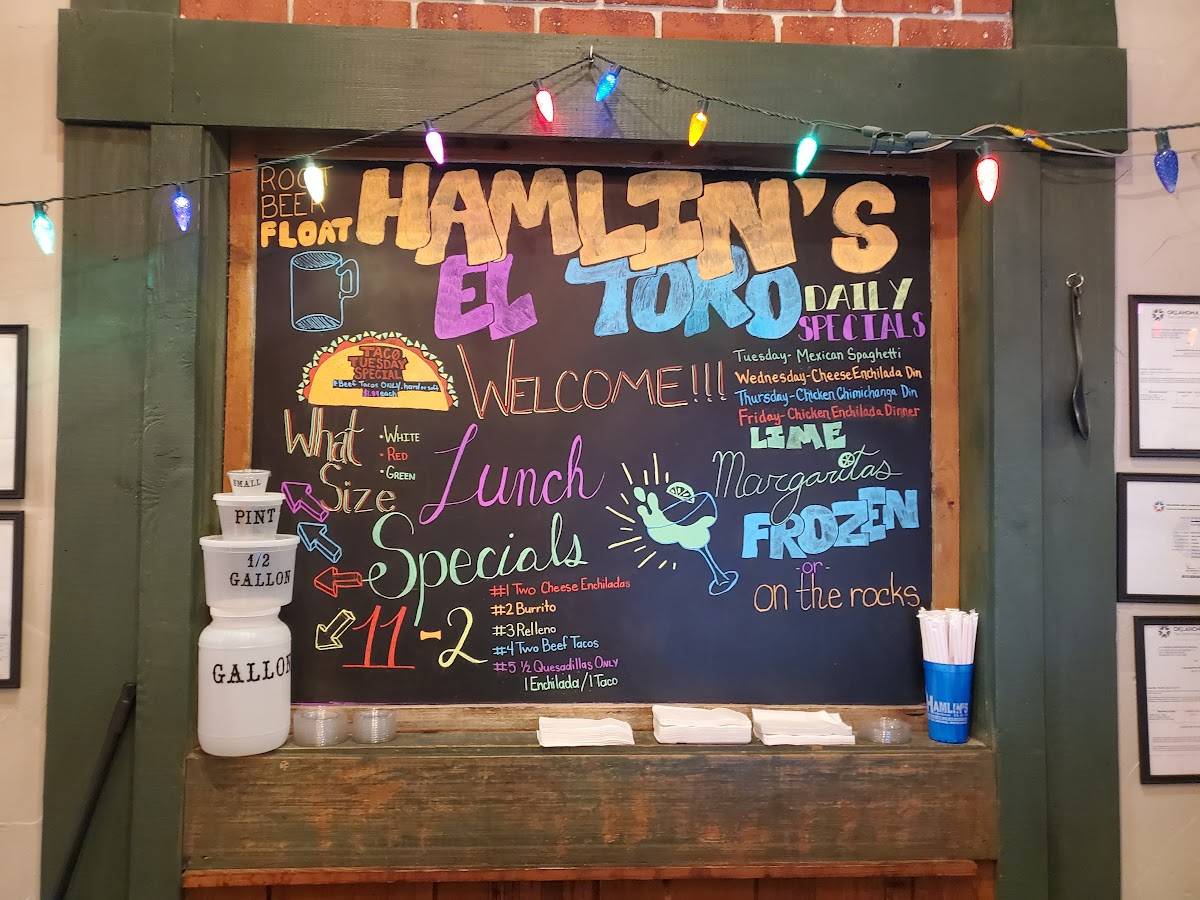 ROOT
BEER
FLOAT
HAMLIN'S
EL TORO
DAILY
SPECIALS
Tuesday- Mexican Spaghetti
Wednesday-Cheese Enchilada Din
Thursday-Chicken Chimichanga Din
Friday-Chicken Enchilada Dinner
TACO
TUESDAY
SPECIAL
Beef Tacos ONLY/hard or soft
$1.99 each
WELCOME!!!
What
Size
•WHITE
•RED
•GREEN
Lunch
Specials
11-2
#1 Two Cheese Enchiladas
#2 Burrito
#3 Relleno
#4 Two Beef Tacos
#5 1/2 Quesadillas ONLY
1 Enchilada/1 Taco
LIME
Margaritas
FROZEN
-or-
on the rocks
SMALL
PINT
1/2
GALLON
GALLON
HAMLIN'S
OKLAHOMA